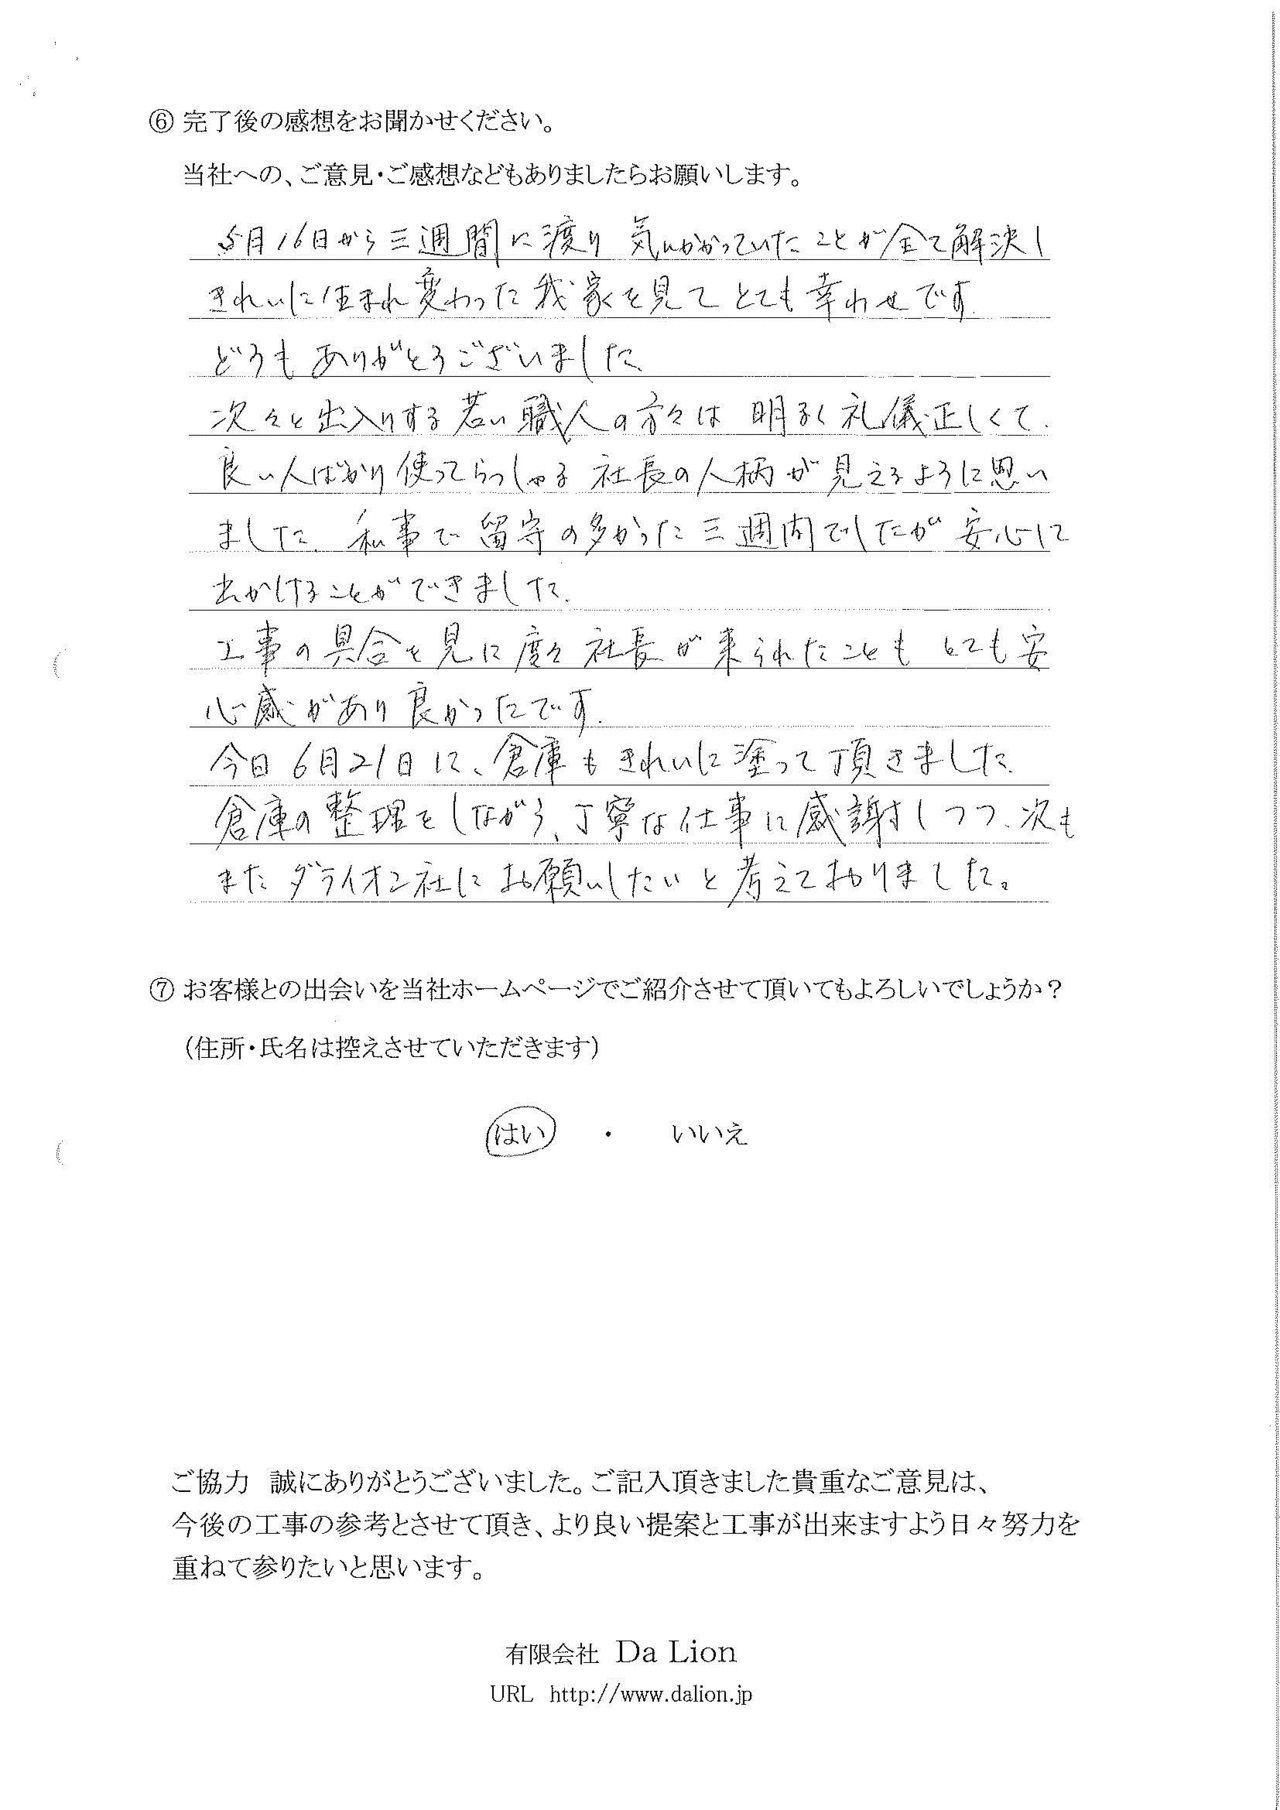 ⑥ 完了後の感想をお聞かせください。
当社への、ご意見・ご感想などもありましたらお願いします。
5月16日から三週間に渡り 気にかかっていたことが全て解決し
きれいに生まれ変わった我家を見てとても幸わせです.
どうもありがとうございました.
次々と出入りする若い職人の方々は 明るく礼儀正しくて.
良い人ばかり使ってらっしゃる 社長の人柄が見えるように思い
ました. 私事で留守の多かった三週間でしたが 安心して
出かけることができました.
工事の具合を見に度々社長が来られたことも とても安
心感があり良かったです.
今日6月21日に、倉庫もきれいに塗って頂きました.
倉庫の整理をしながら、丁寧な仕事に感謝しつつ、次も
またダライオン社にお願いしたいと考えておりました。
⑦ お客様との出会いを当社ホームページでご紹介させて頂いてもよろしいでしょうか？
（住所・氏名は控えさせていただきます）
はい ・ いいえ
ご協力 誠にありがとうございました。ご記入頂きました貴重なご意見は、
今後の工事の参考とさせて頂き、より良い提案と工事が出来ますよう日々努力を
重ねて参りたいと思います。
有限会社 Da Lion
URL http://www.dalion.jp